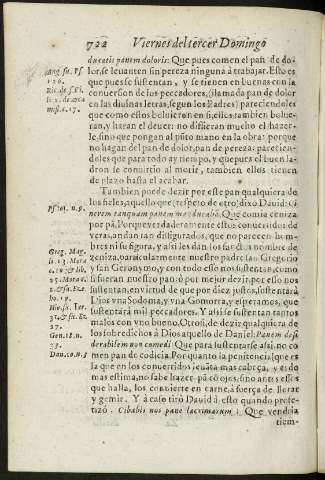 722 Viernes del tercer Domingo
ducatis panem doloris. Que pues comen el pan de dolor,
se leuanten sin pereza ninguna à trabajar. Esto es
que pues se sustentan, y se tienen en buenas con la
conuersion de los peccadores, (llamada pan de dolor
en las diuinas letras, segun los Padres) pareciendoles
que como estos boluieron en si, ellos tambien bolueran,
y haran el deuer: no dificulten mucho el hazerle,
sino que pongan al piso mano en la obra: porque
no hagan del pan de dolor, pan de pereza: pareciendoles
que para todo ay tiempo, y que pues el buen ladron
se conuirtio al morir, tambien ellos tienen
de plazo hasta el acabar.
Tambien puede dezir por este pan qualquiera de
los fieles, aquello que (respeto de otro) dixo Dauid: Cinerem
tanquam panem manducabã. Que comia ceniza
por pã. Porque verdaderamente estos conuertidos de
veras, andan tan disfigurados, que no parecen hombres
ni su figura, y assi les dan los santos nombre de
zeniza, particularmente nuestro padre san Gregorio
y san Geronymo, y con todo esso nos sustentan, como
si fueran nuestro pan ò por mejor dezir, por esso nos
sustentan, en virtud de que por diez justos, sustentarà
Dios vna Sodoma, y vna Gomorra, y esperamos, que
sustentarà mil peccadores. Y assi se sustentan tantos
malos con vno bueno. Otrosi, de dezir qualquiera de
los sobredichos à Dios aquello de Daniel: Panem desiderabilem
non comedi Que para sustentarse assi, no comen
pan de codicia. Por quanto la penitencia (que es
la que en los conuertidos leuãta mas cabeça, y es de
mas estima, no sabe hazer pã co ojos, sino antes ellos
que halla, los conuierte en carne, à fuerça de llorar
y gemir. Y à caso tirò Dauid à esto quando profetizò.
Cibabis nos pane lacrimarum? Que vendria
tiem-
Psl 101. n. 9.
Greg. Mag.
27.
Gen. 18. n.
Dan. 10. n. 3